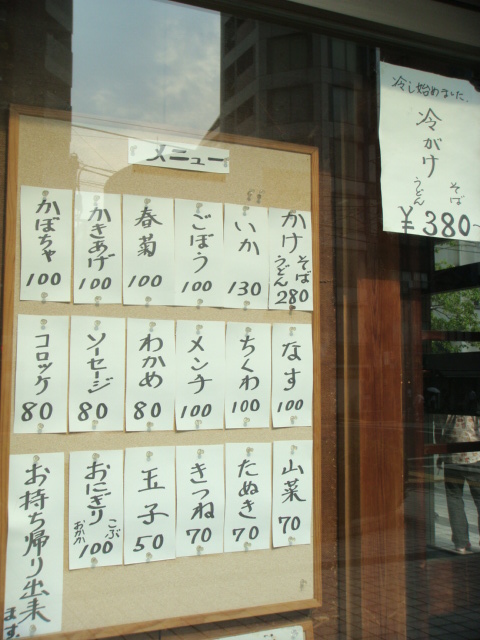 メニュー
かけ そば うどん 280
いか 130
ごぼう 100
春菊 100
かきあげ 100
かぼちゃ 100
なす 100
ちくわ 100
メンチ 100
わかめ 80
ソーセージ 80
コロッケ 80
山菜 70
たぬき 70
きつね 70
玉子 50
おにぎり こぶ おかか 100
お持ち帰り出来ます
冷し始めました。
冷がけ
そば
うどん
¥380~